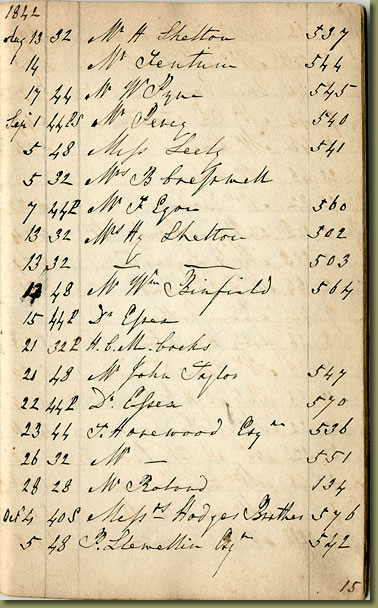 1842
Aug 13 32 Mr H Shelton 537
14 Mr Fentum 544
17 44 Mr W Pyne 545
Sept 1 44PS Mr Perez 540
5 48 Miss Leely 541
5 32 Mrs B Cresswell
7 44P Mr F Egan 560
13 32 Mrs Hy Shelton 502
13 32 — — 503
13 48 Mr Wm Binfield 564
15 44P Dr Essex
21 32P H. C. M. Cocks
21 48 Mr John Taylor 547
22 44P Dr. Essex 570
23 44 T. Harewood Esqre 536
26 32 Mr — 551
28 28 Mr Roland 134
Oct 4 40S Messrs Hodges Brothers 576
5 48 P. Llewellin Esqre 542
15